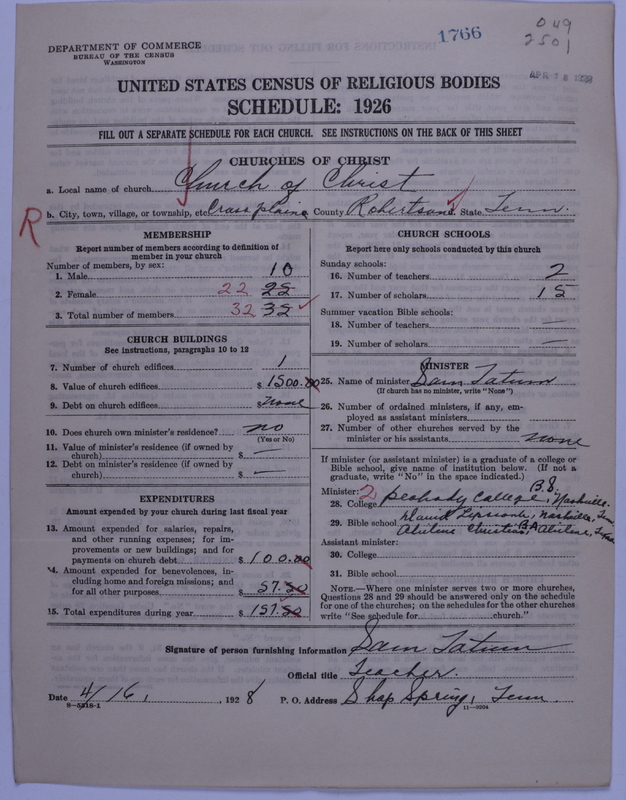 1766
049
2501
DEPARTMENT OF COMMERCE
BUREAU OF THE CENSUS
WASHINGTON
UNITED STATES CENSUS OF RELIGIOUS BODIES
SCHEDULE: 1926
FILL OUT A SEPARATE SCHEDULE FOR EACH CHURCH. SEE INSTRUCTIONS ON THE BACK OF THIS SHEET
CHURCHES OF CHRIST
a. Local name of church Church of Christ
R
b. City, town, village, or township, etc Cross plains County Robertson State Tenn.
MEMBERSHIP
Report number of members according to definition of
member in your church
Number of members, by sex:
1. Male 10
2. Female 22 22
3. Total number of members 32 32
CHURCH BUILDINGS
See instructions, paragraphs 10 to 12
7. Number of church edifices 1
8. Value of church edifices $ 1500.00
9. Debt on church edifices None
10. Does church own minister's residence? no
(Yes or No)
11. Value of minister's residence (if owned by
church) $ —
12. Debt on minister's residence (if owned by
church) $ —
EXPENDITURES
Amount expended by your church during last fiscal year
13. Amount expended for salaries, repairs,
and other running expenses; for im-
provements or new buildings; and for
payments on church debt $ 100.00
14. Amount expended for benevolences, in-
cluding home and foreign missions; and
for all other purposes $ 57.50
15. Total expenditures during year $ 157.50
CHURCH SCHOOLS
Report here only schools conducted by this church
Sunday schools:
16. Number of teachers 2
17. Number of scholars 15
Summer vacation Bible schools:
18. Number of teachers —
19. Number of scholars —
MINISTER
25. Name of minister Sam Tatum
(If church has no minister, write "None")
26. Number of ordained ministers, if any, em-
ployed as assistant ministers
27. Number of other churches served by the
minister or his assistants none
If minister (or assistant minister) is a graduate of a college or
Bible school, give name of institution below. (If not a
graduate, write "No" in the space indicated.)
Minister: 2 B.S.
28. College Peabody College, Nashville
29. Bible school David Lipscomb, Nashville, Tenn
Abilene Christian, BA Abilene, Texas
Assistant minister:
30. College
31. Bible school
NOTE.—Where one minister serves two or more churches,
Questions 28 and 29 should be answered only on the schedule
for one of the churches; on the schedules for the other churches
write "See schedule for church."
Signature of person furnishing information Sam Tatum
Official title Teacher.
Date 4/16, 1928 P. O. Address Shop Spring, Tenn.
8-5318-1
11-9204